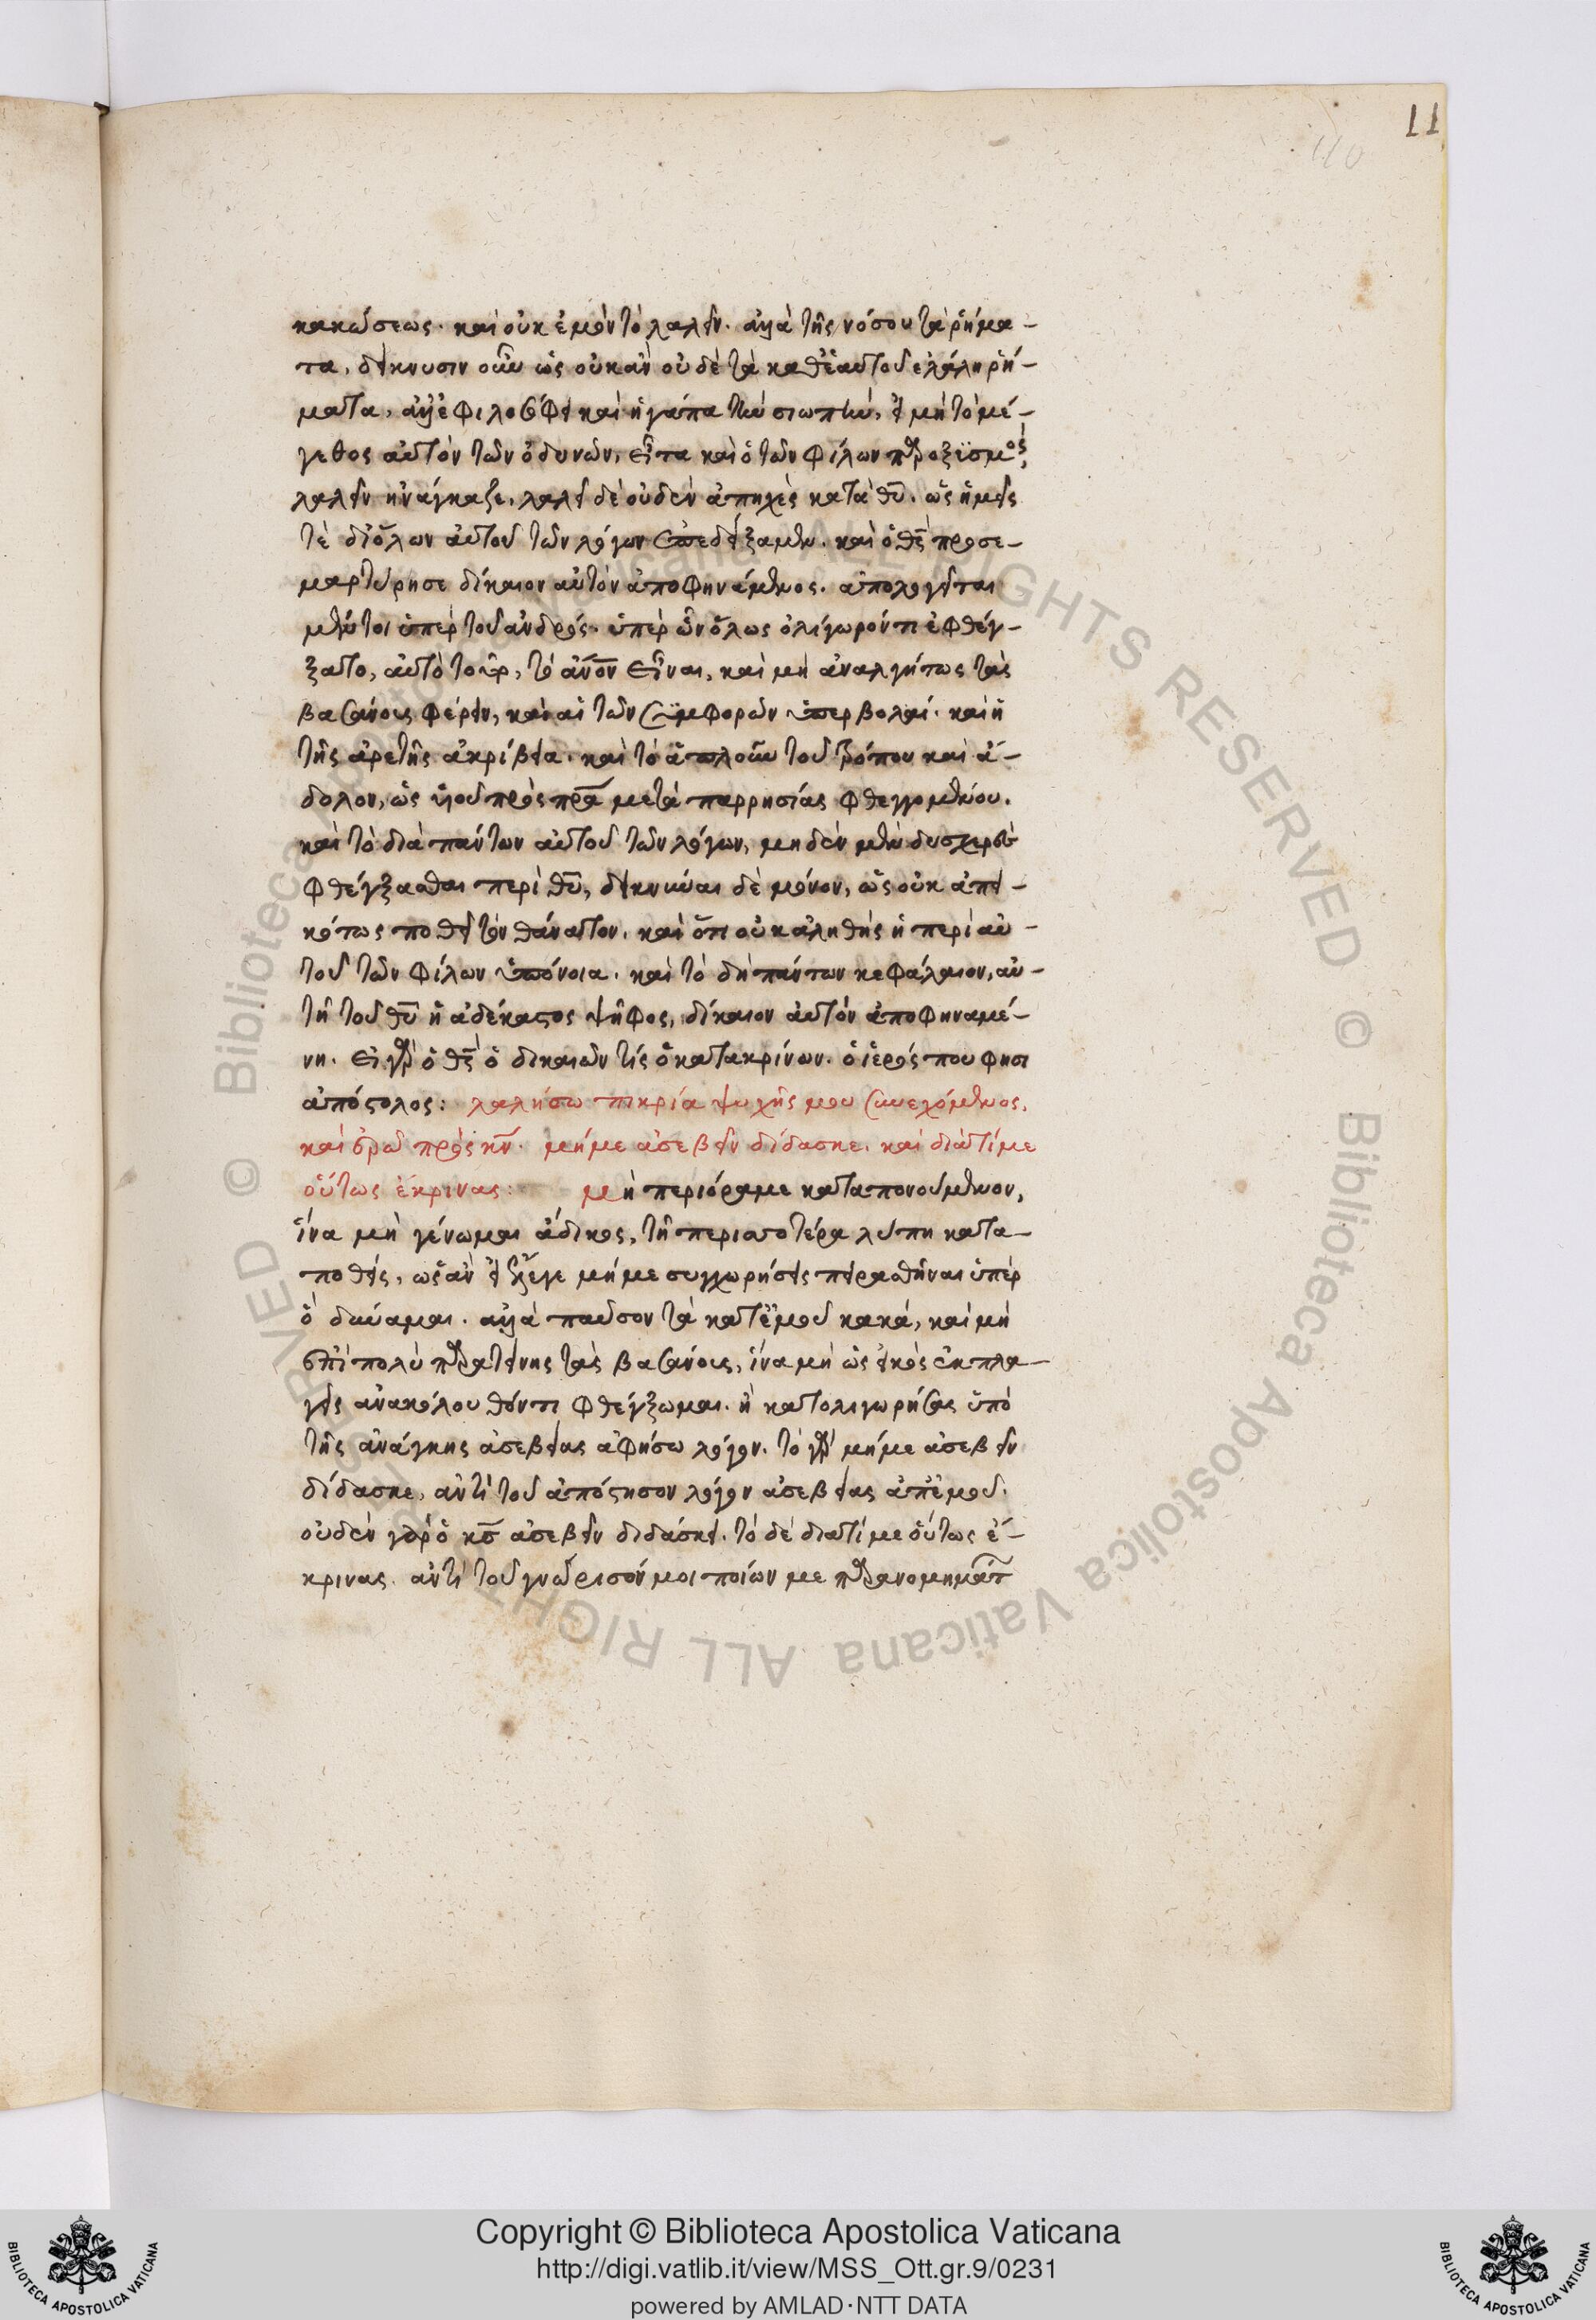 11
110
κακώσεως. καὶ οὐκ ἐμὸν τὸ λαλεῖν. ἀλλὰ τῆς νόσου τὰ ῥήμα-
τα, δείκνυσιν οὖν ὡς οὐκ ἂν οὐδὲ τὰ καθ' ἑαυτοῦ ἐλάλη ῥή-
ματα, ἀλλ' ἐφιλοσόφει καὶ ἠγάπα τὴν σιωπὴν, εἰ μὴ τὸ μέ-
γεθος αὐτὸν τῶν ὀδυνῶν, εἶτα καὶ ὁ τῶν φίλων παροξϊσμὸς,
λαλεῖν ἠνάγκαζε. λαλεῖ δὲ οὐδὲν ἀπηχὲς κατὰ θυ. ὡς ἡμεῖς
τὲ δι' ὅλων αὐτοῦ τῶν λόγων ἐπεδείξαμεν. καὶ ὁ θς προσε-
μαρτύρησε δίκαιον αὐτὸν ἀποφηνάμενος. ἀπολογεῖται
μέντοι ὑπὲρ τοῦ ἀνδρός. ὑπὲρ ὧν ὅλως ὀλιγωρόν τι ἐφθέγ-
ξατο, αὐτὸ τοῦτο, τὸ ἄνον εἶναι, καὶ μὴ ἀναλγήτως τὰς
βασάνους φέρειν, καὶ αἱ τῶν συμφορῶν ὑπερβολαί. καὶ ἡ
τῆς ἀρετῆς ἀκρίβεια. καὶ τὸ ἁπλοῦν τοῦ τρόπου καὶ ἄ-
δολον, ὡς υἱοῦ πρὸς πρα μετὰ παρρησίας φθεγγομένου.
καὶ τὸ διὰ πάντων αὐτοῦ τῶν λόγων, μηδὲν μὲν δυσχερὲς
φθέγξασθαι περὶ θυ, δεικνύναι δὲ μόνον, ὡς οὐκ ἀπει-
κότως ποθεῖ τὸν θάνατον. καὶ ὅτι οὐκ ἀληθὴς ἡ περὶ αὐ-
τοῦ τῶν φίλων ὑπόνοια. καὶ τὸ δὴ πάντων κεφάλαιον, αὐ-
τὴ τοῦ θυ ἡ ἀδέκαστος ψῆφος, δίκαιον αὐτὸν ἀποφηναμέ-
νη. εἰ γὰρ ὁ θς ὁ δικαιῶν τίς ὁ κατακρίνων. ὁ ἱερός που φησι
ἀπόστολος: λαλήσω πικρία ψυχῆς μου συνεχόμενος,
καὶ ἐρῶ πρὸς κν. μή με ἀσεβεῖν δίδασκε. καὶ διὰτί με
οὕτως ἔκρινας: μὴ περιόρα με καταπονούμενον,
ἵνα μὴ γένωμαι ἄδικος, τῇ περισσοτέρα λύπη κατα-
ποθείς, ὡς ἂν εἰ ἔλεγε μή με συγχωρήσεις πειραθῆναι ὑπὲρ
ὃ δύναμαι. ἀλλὰ παῦσον τὰ κατ' ἐμοῦ κακά, καὶ μὴ
ἐπὶ πολὺ παρατείνης τὰς βασάνους, ἵνα μὴ ὡς εἰκὸς ἐκπλα-
γεὶς ἀνακόλουθόν τι φθέγξωμαι. ἢ κατολιγωρήσας ὑπὸ
τῆς ἀνάγκης ἀσεβείας ἀφήσω λόγον. τὸ γὰρ μή με ἀσεβεῖν
δίδασκε, ἀντὶ τοῦ ἀπόστησον λόγον ἀσεβείας ἀπ' ἐμοῦ.
οὐδὲν γὰρ ὁ κς ἀσεβεῖν διδάσκει. τὸ δὲ διατί με οὕτως ἔ-
κρινας. ἀντὶ τοῦ γνώρισόν μοι ποίων με παρανομημάτ
Copyright © Biblioteca Apostolica Vaticana
http://digi.vatlib.it/view/MSS_Ott.gr.9/0231
powered by AMLAD·NTT DATA